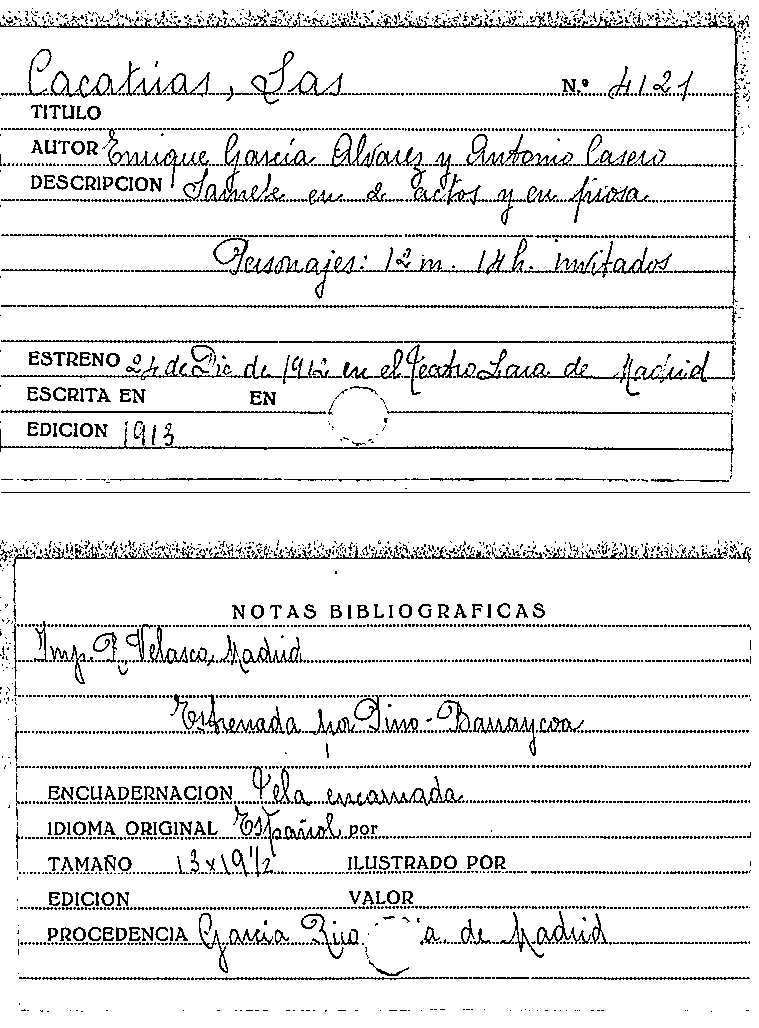 Cacatúas, Las N.º 4121
TITULO
AUTOR Enrique García Alvarez y Antonio Casero
DESCRIPCION Sainete en 2 actos y en prosa
Personajes: 12 m. 14 h. invitados
ESTRENO 24 de Dic de 1912 en el Teatro Lara de Madrid
ESCRITA EN EN
EDICION 1913
NOTAS BIBLIOGRAFICAS
Imp. R. Velasco, Madrid
Estrenada por Pino-Barraycoa
ENCUADERNACION Tela encarnada
IDIOMA ORIGINAL Español por
TAMAÑO 13x19 1/2 ILUSTRADO POR
EDICION VALOR
PROCEDENCIA García Rico a. de Madrid